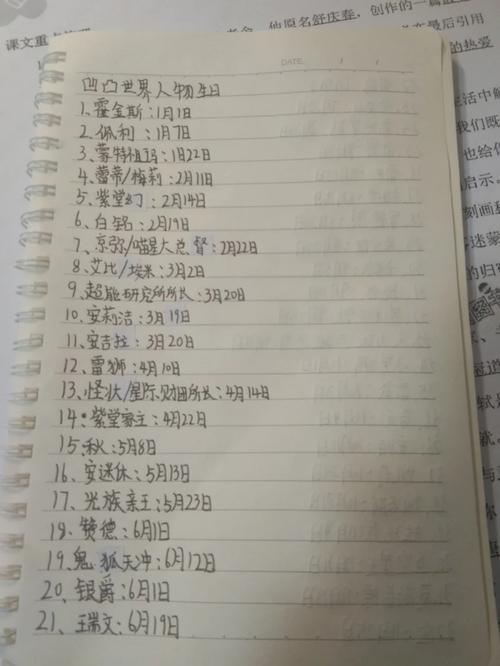 课文重
他原名舒庆春，创作的一篇
最后引用
的热爱
DATE / /
生活中解
我们既
也给
启示。
刻画
迷蒙
的归
凹凸世界人物生日
1、霍金斯：1月1日
2、佩利：1月7日
3、蒙特祖玛：1月22日
4、蕾蒂/梅莉：2月11日
5、紫堂幻：2月14日
6、白铭：2月19日
7、京弥/喵星大总督：2月22日
8、艾比/埃米：3月2日
9、超能研究所所长：3月20日
10、安莉洁：3月19日
11、安吉拉：3月20日
12、雷狮：4月10日
13、怪状/星际财团所长：4月14日
14、紫堂家主：4月22日
15、秋：5月8日
16、安迷休：5月13日
17、光族亲王：5月23日
18、赞德：6月1日
19、鬼狐天冲：6月12日
20、银爵：6月1日
21、王瑞文：6月19日